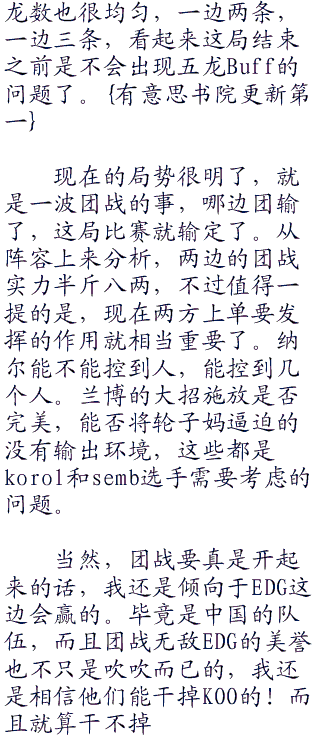 龙数也很均匀，一边两条，
一边三条，看起来这局结束
之前是不会出现五龙Buff的
问题了。{有意思书院更新第
一}
现在的局势很明了，就
是一波团战的事，哪边团输
了，这局比赛就输定了。从
阵容上来分析，两边的团战
实力半斤八两，不过值得一
提的是，现在两方上单要发
挥的作用就相当重要了。纳
尔能不能控到人，能控到几
个人。兰博的大招施放是否
完美，能否将轮子妈逼迫的
没有输出环境，这些都是
korol和semb选手需要考虑的
问题。
当然，团战要真是开起
来的话，我还是倾向于EDG这
边会赢的。毕竟是中国的队
伍，而且团战无敌EDG的美誉
也不只是吹吹而已的，我还
是相信他们能干掉KOO的！而
且就算干不掉